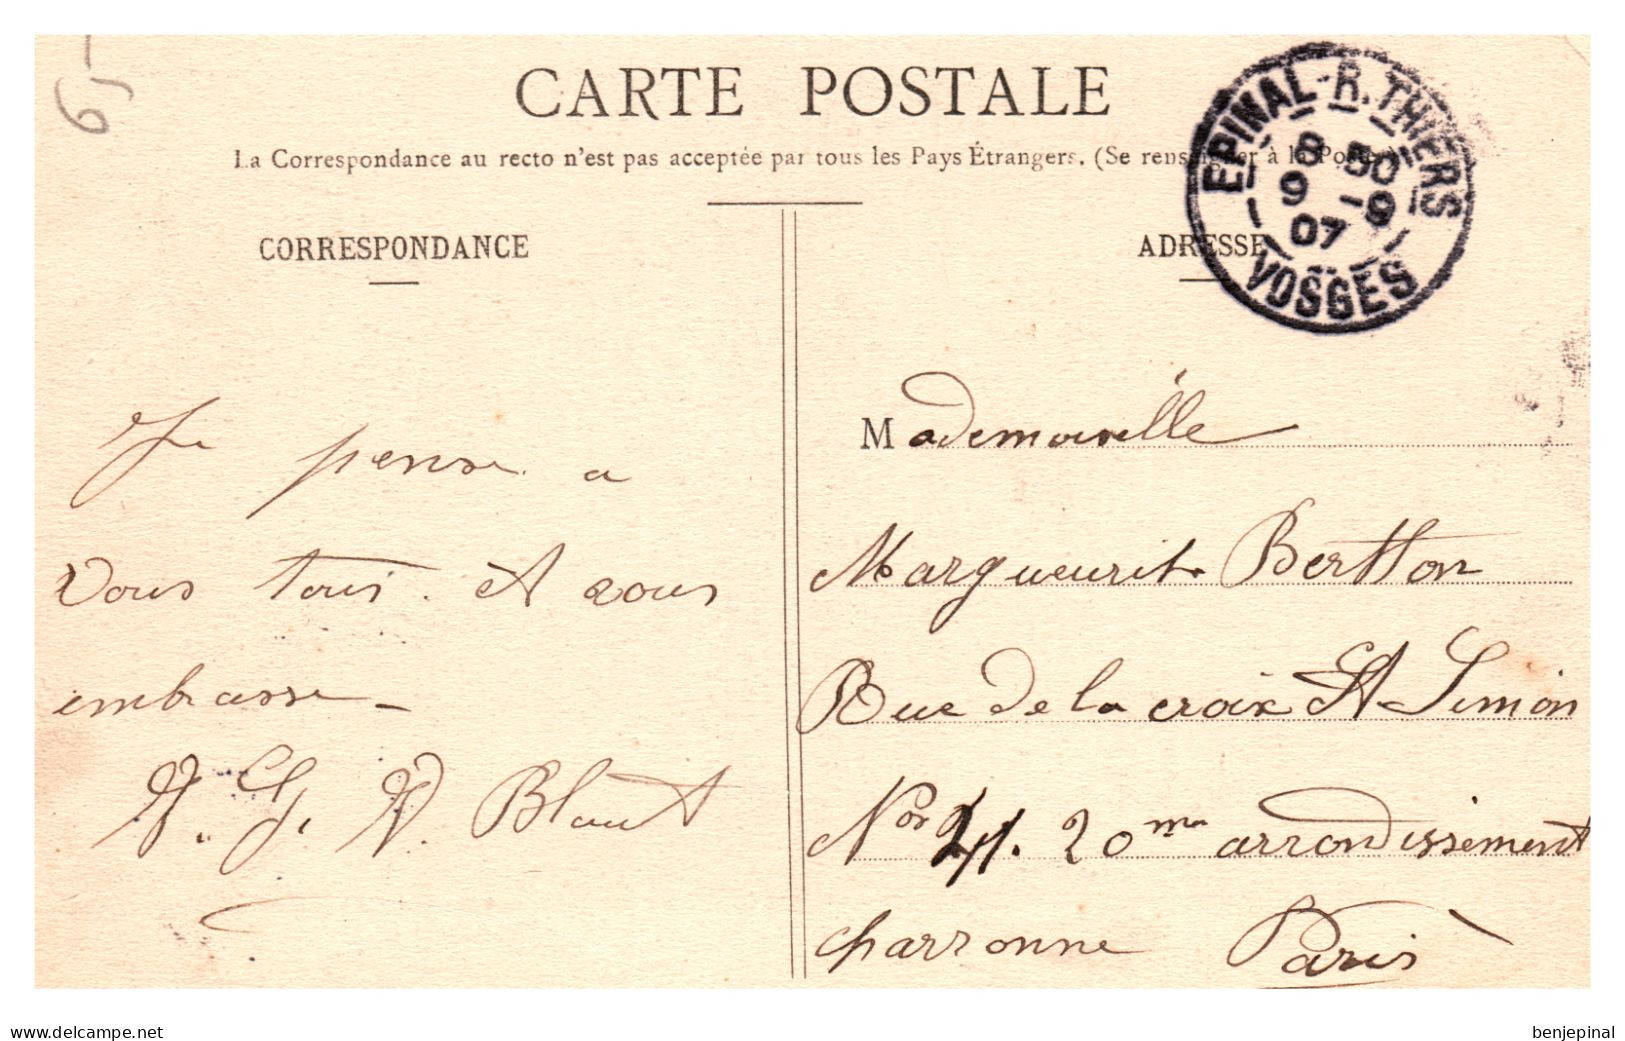 65
CARTE POSTALE
La Correspondance au recto n'est pas acceptée par tous les Pays Étrangers. (Se renseigner à la Poste)
EPINAL - R. THIERS
8 50
9 -9
07
VOSGES
CORRESPONDANCE
Je pense a
vous tous. et vous
embrasse -
V. Blaut
ADRESSE
Mademoiselle
Marguerite Berthon
Rue de la croix St Simon
20me arrondissement
charronne Paris
delcampe.net
benjepinal